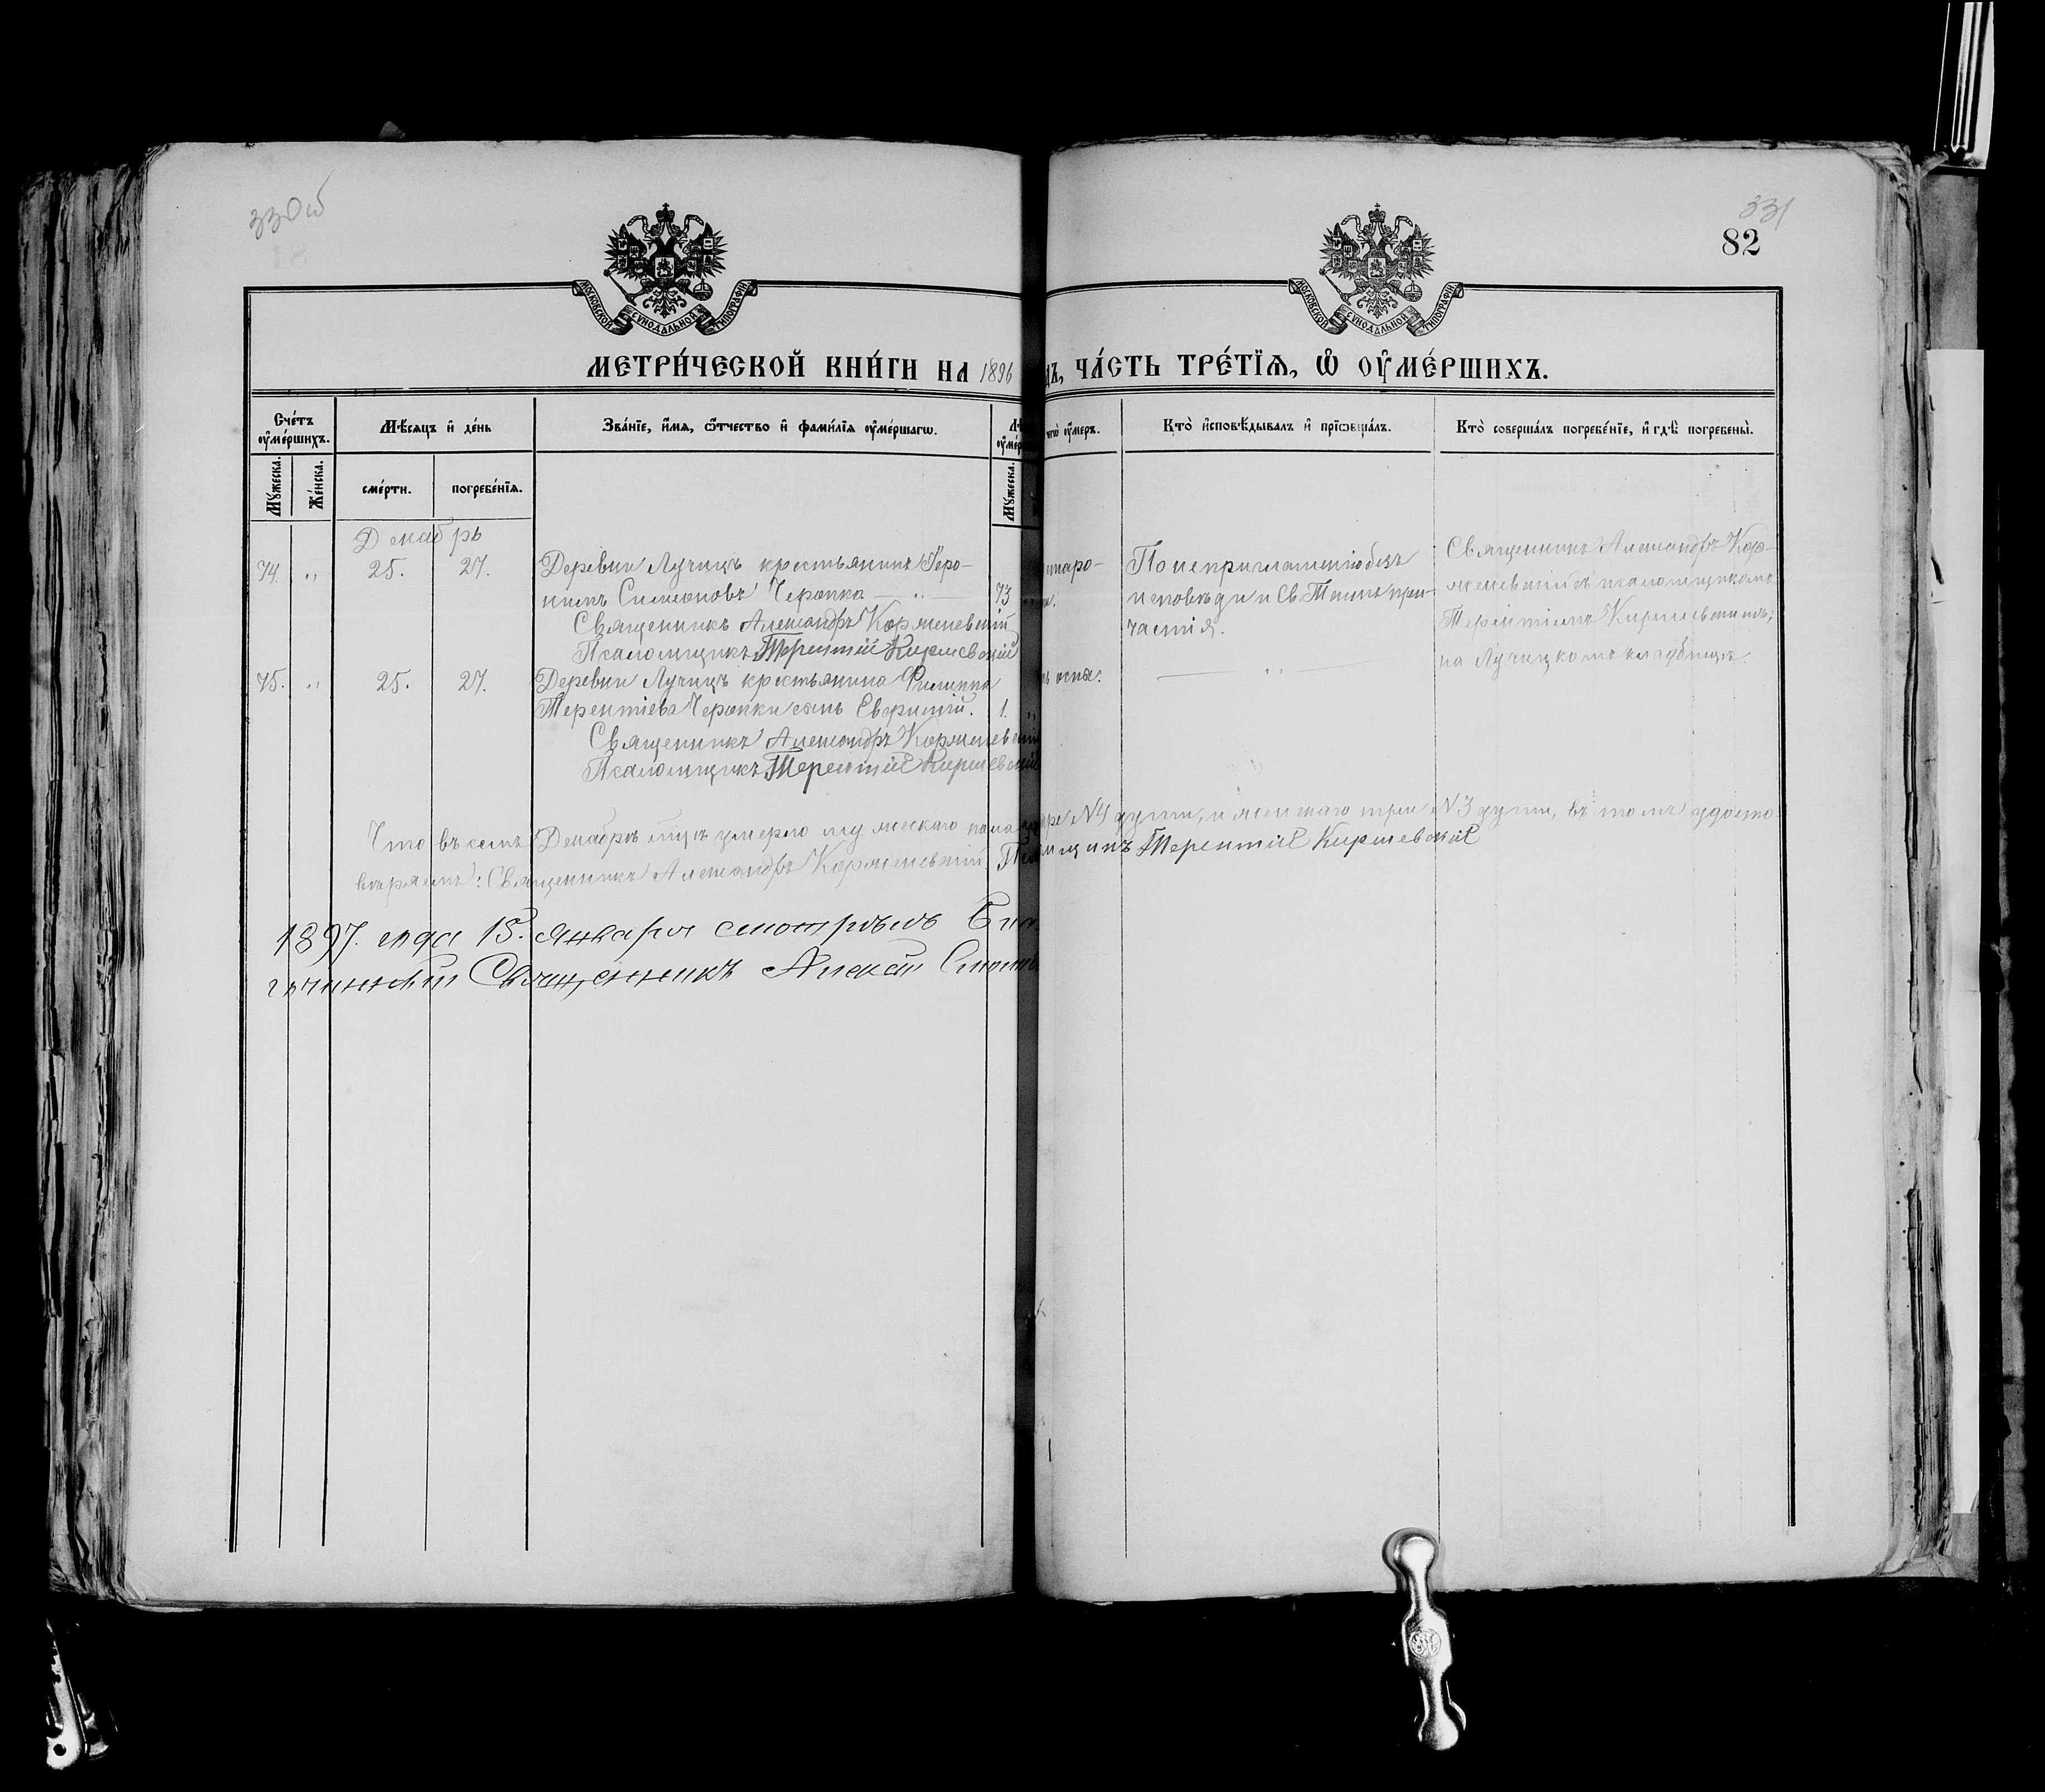 330об
331
82
МОСКОВСКОЙ СѴНОДАЛЬНОЙ ТИПОГРАФІИ
МОСКОВСКОЙ СѴНОДАЛЬНОЙ ТИПОГРАФІИ
МЕТРИ́ЧЕСКОЙ КНИ́ГИ НА 1896
ЧА́СТЬ ТРЕ́ТЇѦ, Ѡ҆ ОУ҆МЕ́РШИХЪ.
Сче́тъ оу҆ме́ршихъ.
Мѣ́сяцъ и҆ де́нь
Зва́нїе, и҆́мя, ѻ҆́тчество и҆ фами́лїя оу҆ме́ршагѡ.
оу҆ме́ръ.
Кто̀ и҆сповѣ́дывалъ и҆ прїѡбща́лъ.
Кто̀ соверша́лъ погребе́нїе, и҆ гдѣ̀ погребены̀.
Мꙋ́жеска.
Же́нска.
сме́рти.
погребе́нїя.
Мꙋ́жеска.
Декабрь
74. " 25. 27. Деревни Лучицъ крестьянинъ Іеро-
нимъ Симеоновъ Черопка — " — 73
Священникъ Александръ Корженевскій
Псаломщикъ Терентій Киршевскій
старо-
По неприглашенію безъ
исповѣди и Св. Таинъ при-
частія.
Священникъ Александръ Кор-
женевскій съ псаломщикомъ
Терентіемъ Киршевскимъ;
на Лучицкомъ кладбищѣ.
75. " 25. 27. Деревни Лучицъ крестьянина Филиппа
Терентіева Черопки сынъ Евфимій. 1. "
оспы. — " —
Священникъ Александръ Корженевскій
Псаломщикъ Терентій Киршевскій
Что въ семъ Декабрѣ мцѣ умерло мужескаго пола №4 души, и женскаго три №3 души, въ томъ удосто-
вѣряемъ: Священникъ Александръ Корженевскій. Терентій Киршевскій
1897. года 15. января смотрѣлъ
гочинный Священникъ Алексѣй